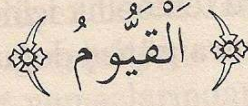 اَلْقَيُّومُ